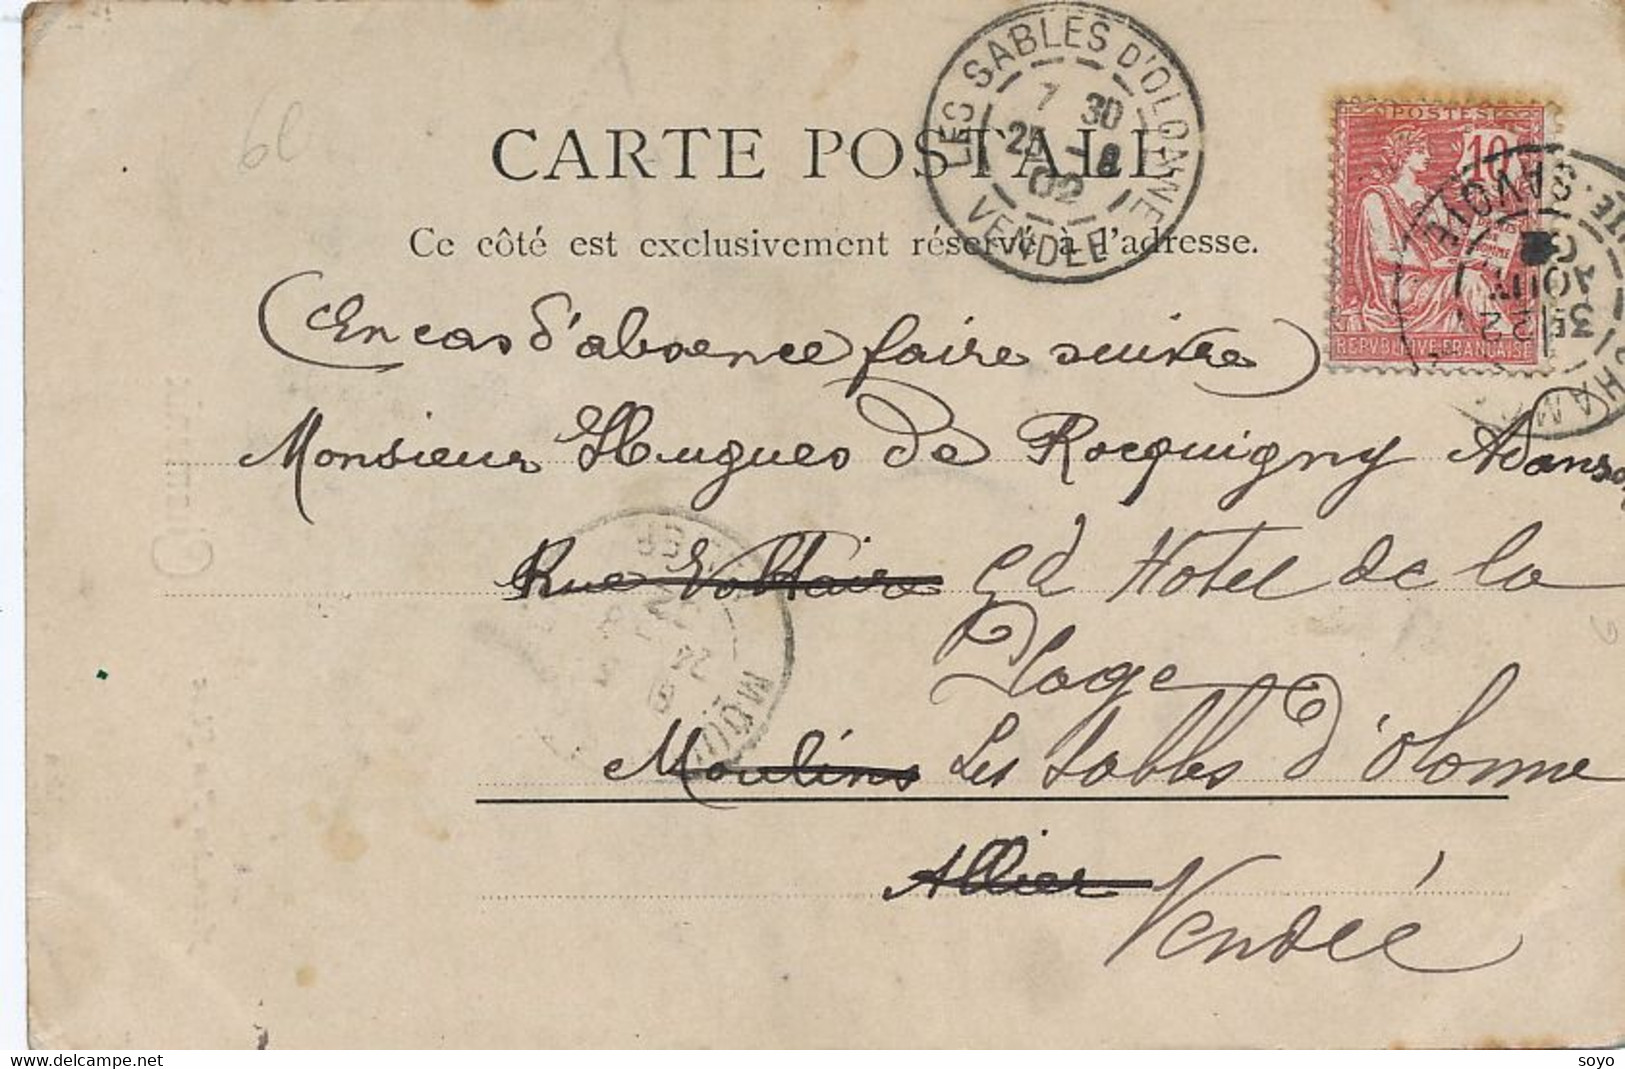 LES SABLES D'OLONNE
7 30
25 8
02
VENDÉE
POSTES
10
REPVBLIQVE FRANÇAISE
SAVOIE
AOUT
CARTE POSTALE
Ce côté est exclusivement réservé à l'adresse.
(En cas d'absence faire suivre)
Monsieur Hugues de Rocquigny Adanson
Rue Voltaire Gd Hotel de la
Plage
Moulins Les Sables d'Olonne
Allier Vendée
60
soyo
www.delcampe.net